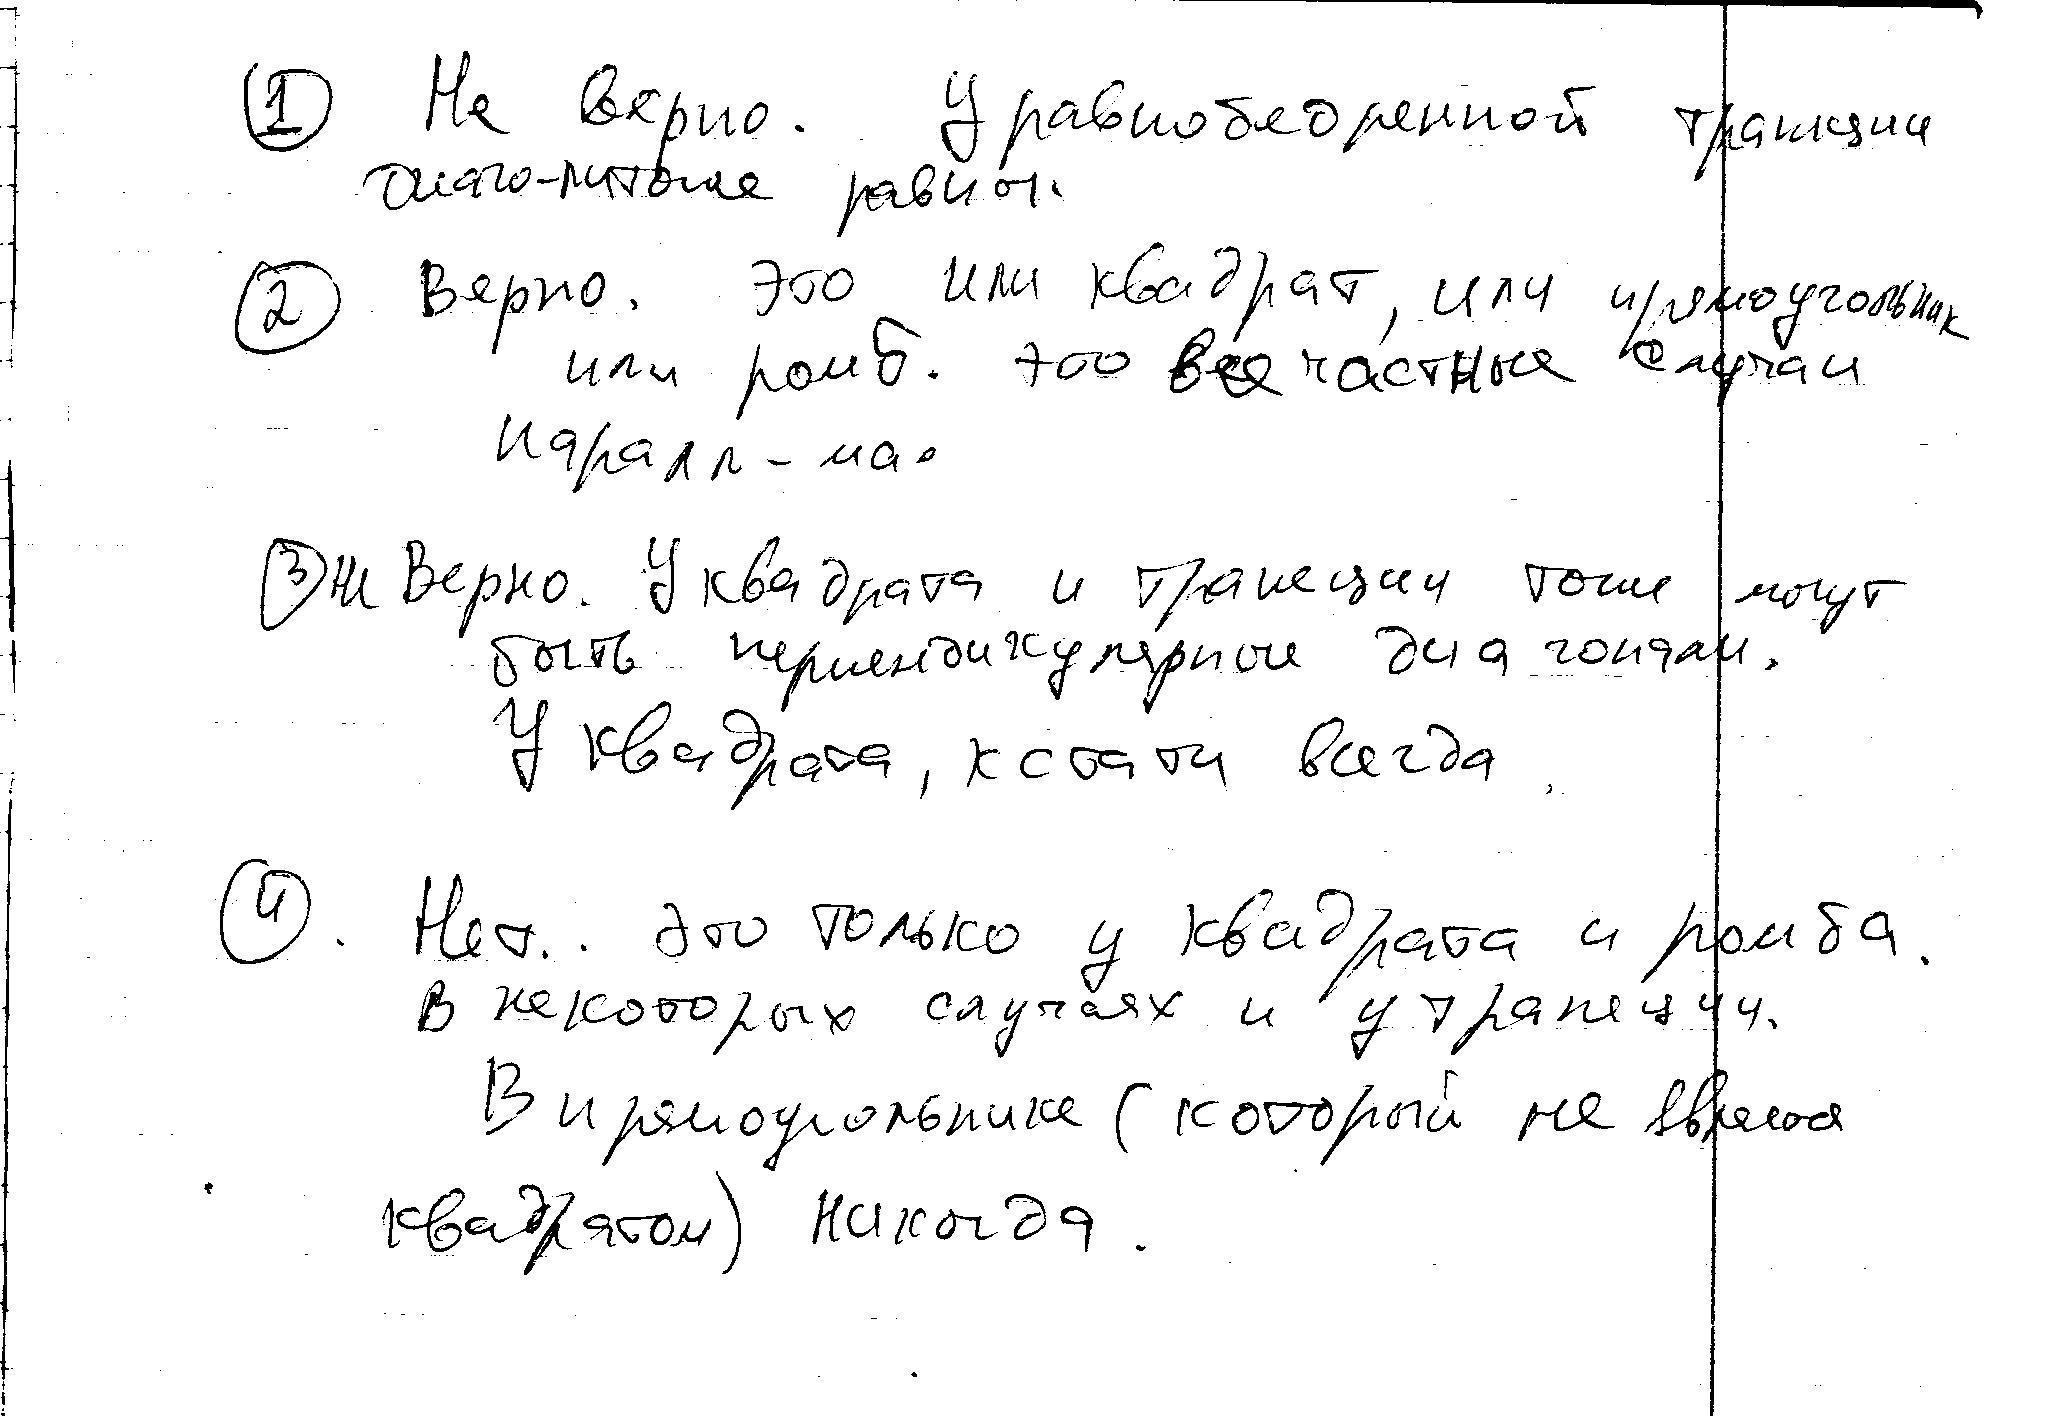 ① Не верно. У равнобедренной трапеции
тоже равны.
② Верно. Это или квадрат, или прямоугольник
или ромб. Это все частные случаи
паралл-ма.
③ Не Верно. У квадрата и трапеции тоже могут
быть перпендикулярные диагонали.
У квадрата, кстати всегда.
④. Нет. Это только у квадрата и ромба.
В некоторых случаях и у трапеции.
В прямоугольнике (который не явл-ся
квадратом) никогда.